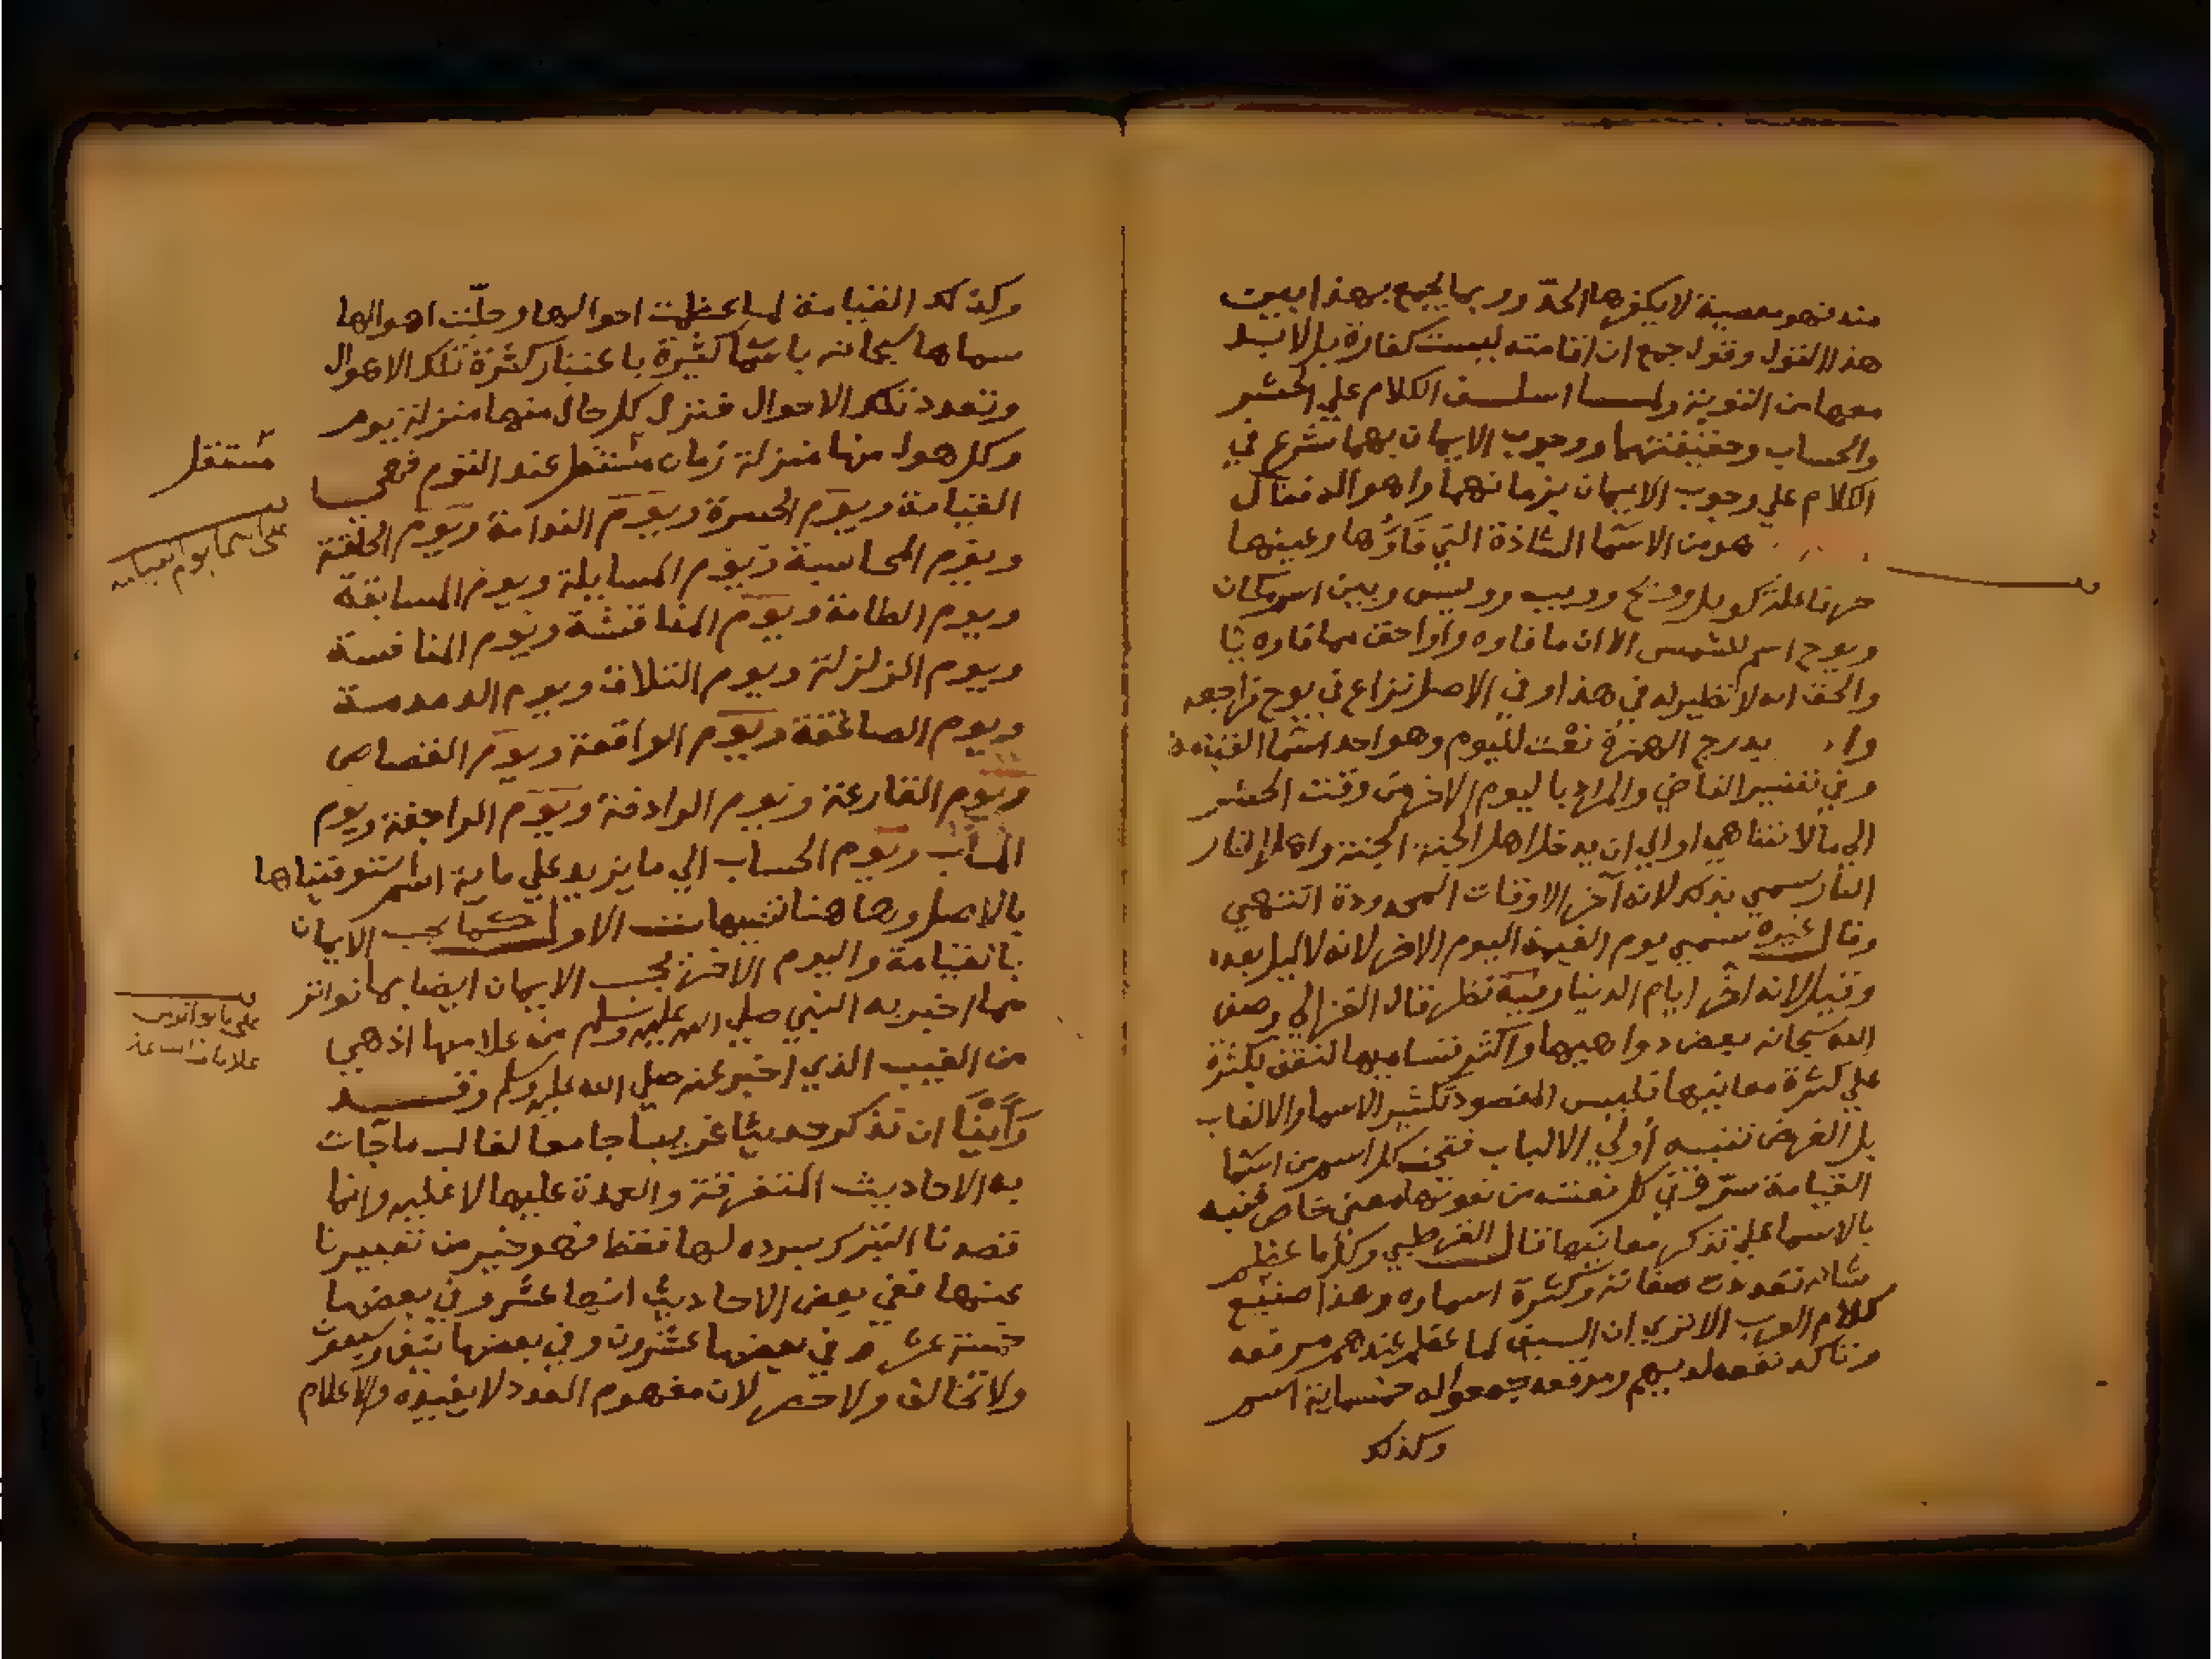 منه فهو معصية لا يكفرها الحدّ وربما يجمع بهذا بين
هذا القول وقول جمع ان اقامته ليست كفارة بل لا بد
معها من التوبة ولما اسلف الكلام علي الحشر
والحساب وحقيقتهما ووجوب الايمان بهما شرع في
الكلام علي وجوب الايمان بزمانهما واهواله فقال
هو من الاسما الشاذة التي فاؤها وعينها
حرفا علة كويل وويح وويب وويس ويين اسم مكان
ويوح اسم للشمس الا ان ما فاوه واو احق مما فاوه يا
والحق انه لا نظير له في هذا وفي الاصل نزاع في يوح فراجعه
بدرج الهمزة نعت لليوم وهو احد اسما القيامة
وفي تفسير القاضي والمراد باليوم الاخر من وقت الحشر
الي ما لا يتناهي او الي ان يدخل اهل الجنة الجنة واهل النار
النار سمي بذلك لانه آخر الاوقات المحدودة انتهي
وقال غيره سمي يوم القيمة اليوم الاخر لانه لا ليل بعده
وقيل لانه اخر ايام الدنيا وفيه نظر قال الغزالي وصف
الله سبحانه بعض دواهيها واكثر من اساميها لتقف بكثرة
علي كثرة معانيها فليس المقصود تكثير الاسما والالقاب
بل الغرض تنبيه أولي الالباب فتحت كل اسم من اسما
القيامة سرّ وفي كل نعت من نعوتها معني خاص فنبه
بالاسما علي تذكر معانيها قال القرطبي وكل ما عظم
شانه تعددت صفاته وكثرة اسماوه وهذا صنيع
كلام العرب الا تري ان السيف لما عظم عندهم موقعه
وتاكد نفعه لديهم وموقعه جمعوا له خمسماية اسم
وكذلك
وكذلك القيامة لما عظمت احوالها وجلّت اهوالها
سماها سبحانه باسما كثيرة باعتبار كثرة تلك الاهوال
وتعدد تلك الاحوال فنزل كل حال منها منزلة يوم
وكل هول منها منزلة زمان مستقل عند القوم فهي
القيامة ويوم الحسرة ويوم الندامة ويوم
ويوم المحاسبة ويوم المسايلة ويوم المسابقة
ويوم الطامة ويوم المناقشة ويوم المنافسة
ويوم الزلزلة ويوم التلاق ويوم الدمدمة
ويوم الصاعقة ويوم الواقعة ويوم القصاص
ويوم القارعة ويوم الرادفة ويوم الراجفة ويوم
المآب ويوم الحساب الي ما يزيد علي ماية اسم استوفيناها
بالاصل وها هنا تنبيهات الاول كما يجب الايمان
بالقيامة واليوم الآخر يجب الايمان ايضا بما تواتر
مما اخبر به النبي صلي الله عليه وسلم من علاماتها اذ هي
من الغيب الذي اخبر عنه صلي الله عليه وسلم وقد
رَأَيْنَا ان نذكر حديثا غريبا جامعا لغالب ما جات
به الاحاديث المتفرقة والعمدة عليها لا عليه وانما
قصدنا التبرك بسرده لها فقط فهو خير من تعبيرنا
عنها ففي بعض الاحاديث انها عشر وفي بعضها
خمسة عشر وفي بعضها عشرون وفي بعضها نيف وسبعون
ولا تخالف ولا حصر لان مفهوم العدد لا يفيده والاعلام
مستقل
على اسما يوم القيامة
على ما تواتر من
علامات الساعة